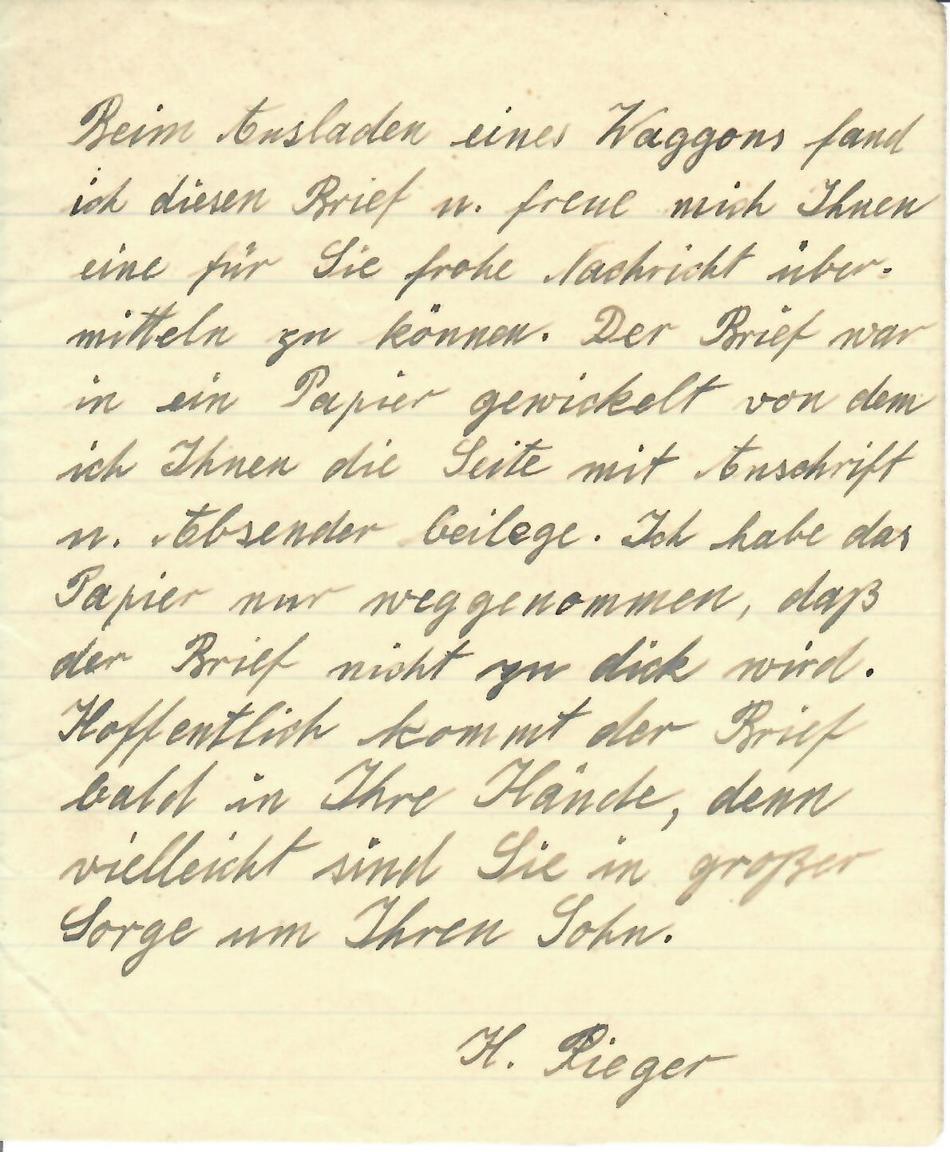 Beim Ausladen eines Waggons fand
ich diesen Brief u. freue mich Ihnen
eine für Sie frohe Nachricht über-
mitteln zu können. Der Brief war
in ein Papier gewickelt von dem
ich Ihnen die Seite mit Anschrift
u. Absender beilege. Ich habe das
Papier nur weggenommen, daß
der Brief nicht zu dick wird.
Hoffentlich kommt der Brief
bald in Ihre Hände, denn
vielleicht sind Sie in großer
Sorge um Ihren Sohn.
H. Rieger